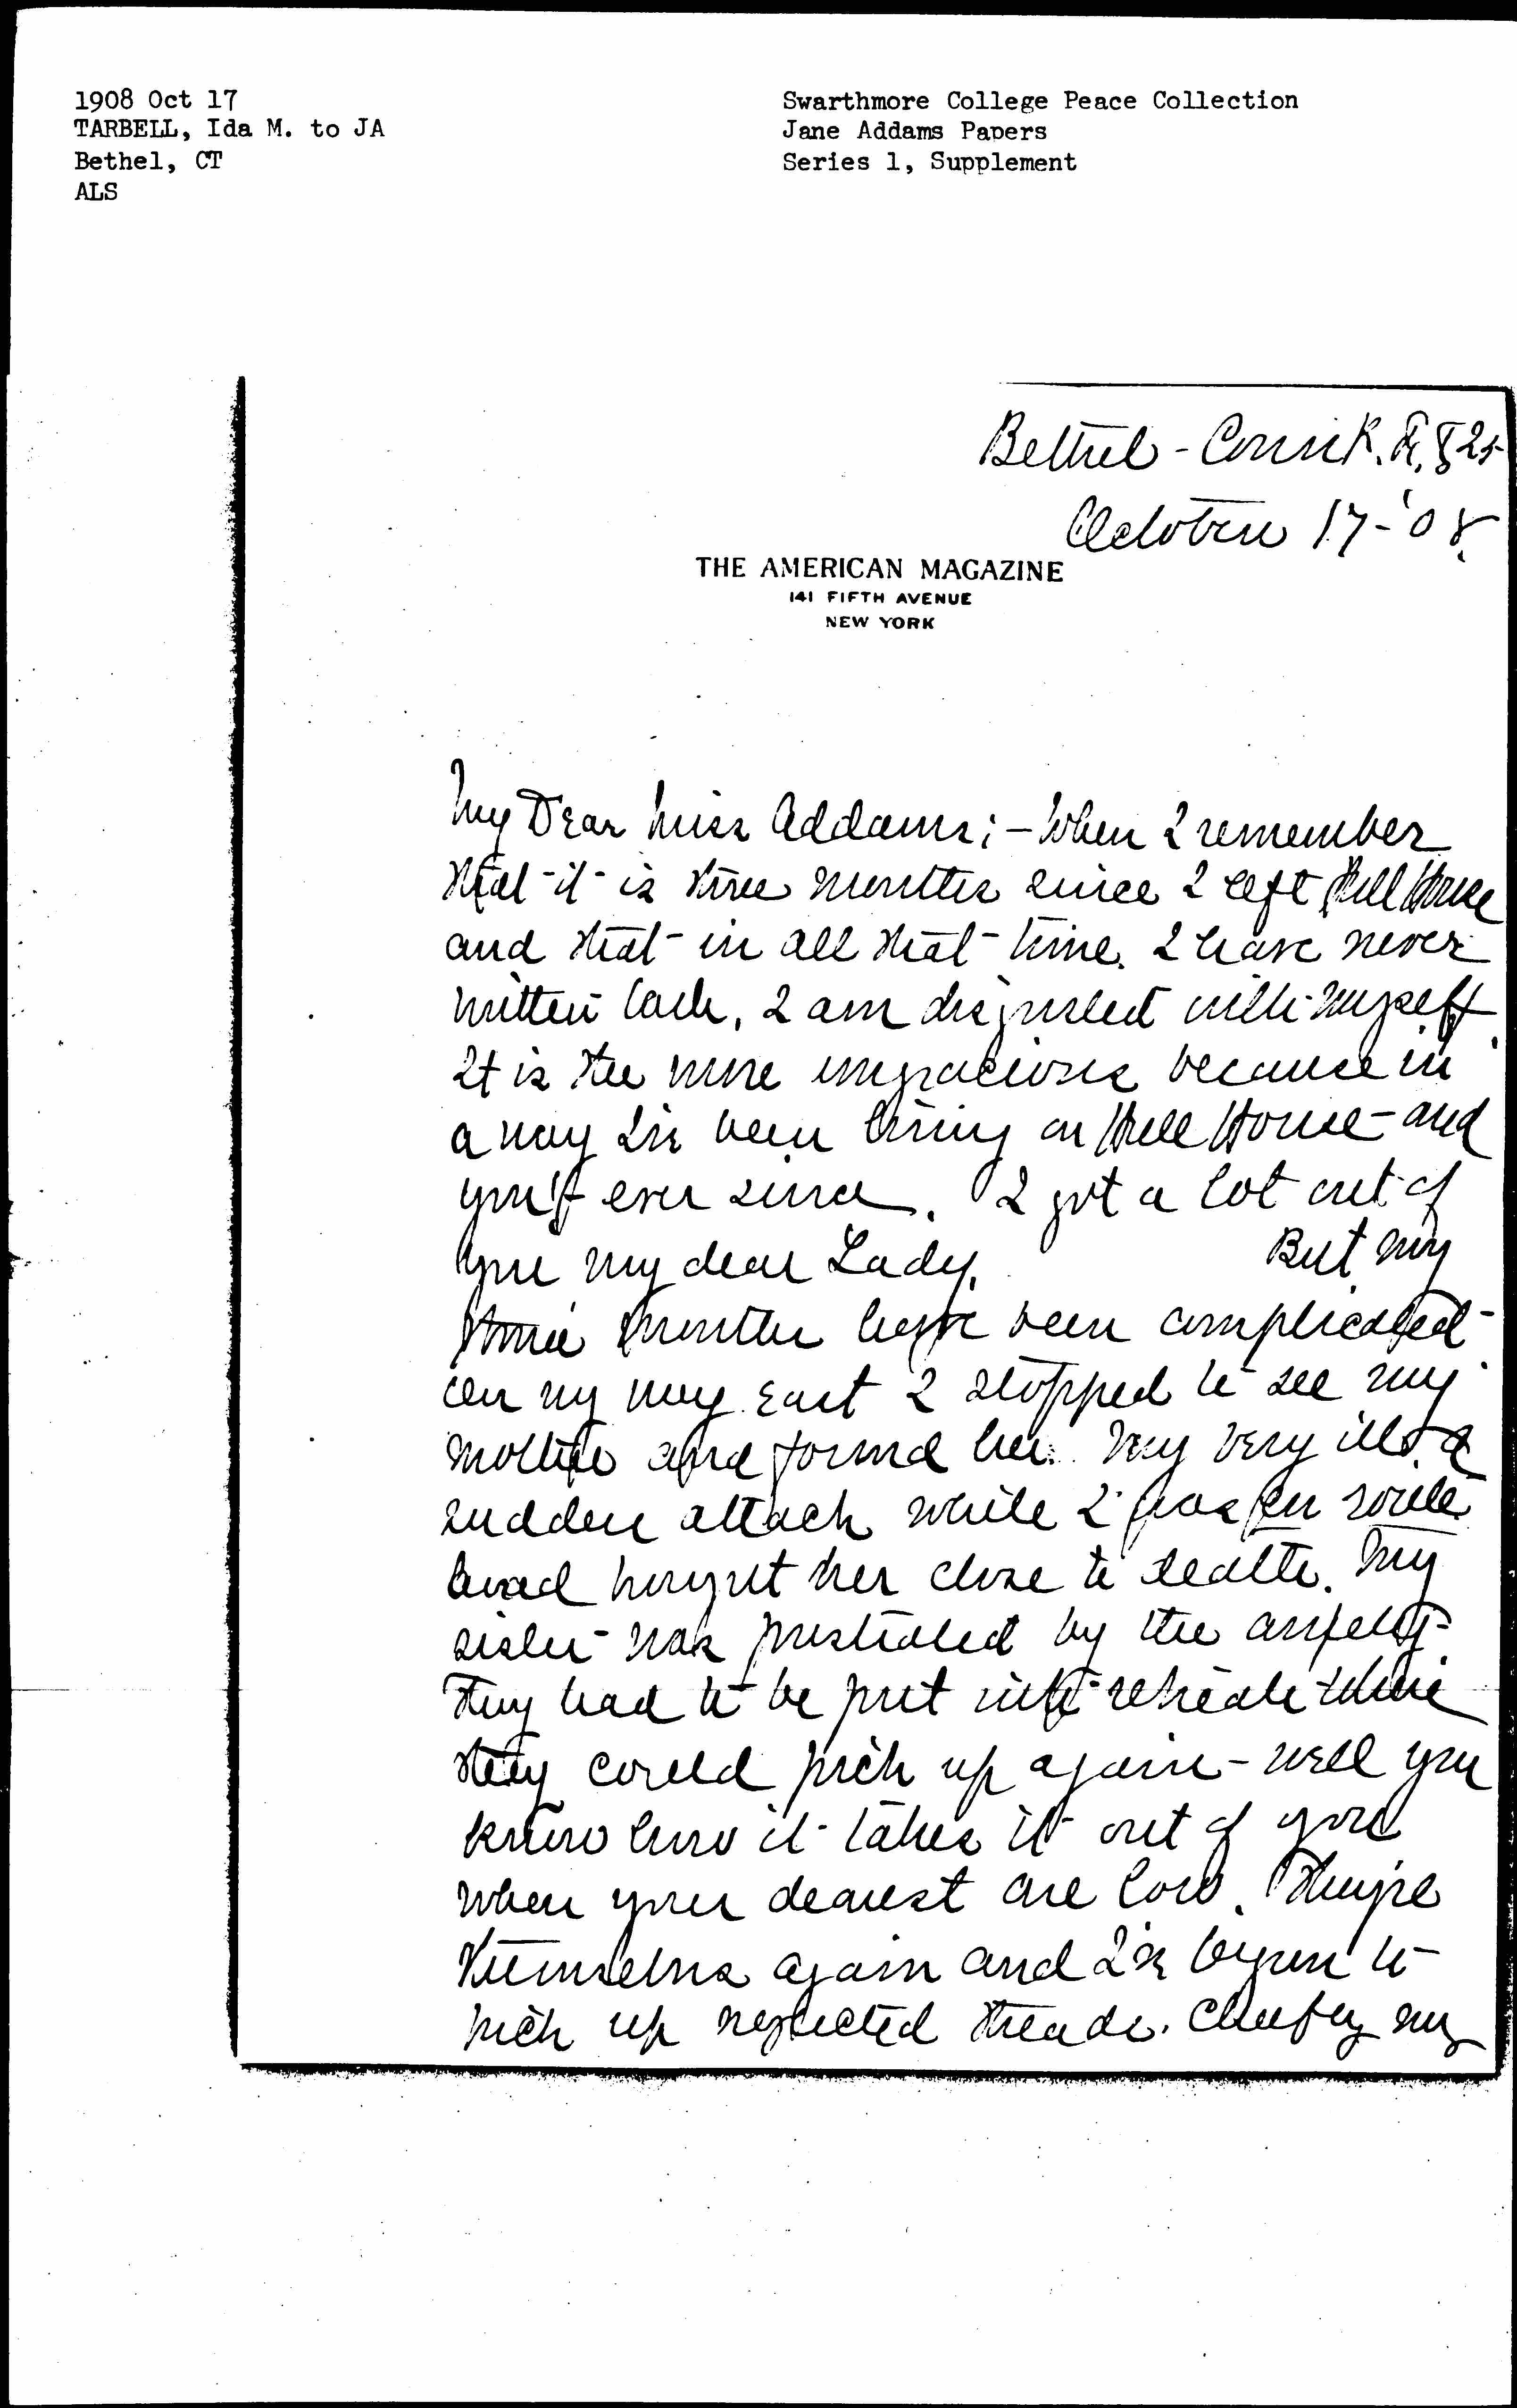 1908 Oct 17
TARBELL, Ida M. to JA
Bethel, CT
ALS
Swarthmore College Peace Collection
Jane Addams Papers
Series 1, Supplement
Bethel - Conn
October 17-'08.
THE AMERICAN MAGAZINE
141 FIFTH AVENUE
NEW YORK
My Dear Miss Addams; - When I remember
that it is three months since I left Hull House
and that in all that time I have never
written back, I am disgusted with myself.
It is the more ungracious because in
a way I've been living on Hull House - and
you ever since. I got a lot out of
you my dear Lady. But my
three months have been complicated
on my way East I stopped to see my
mother and found her very very ill. a
sudden attack while I was en route
had her close to death. My
sister was prostrated by the anxiety -
They had to be put into where
they could pick up again - well you
know how it takes it out of you
when your dearest are low. They're
themselves again and I've begun to
pick up neglected threads. Chiefly my